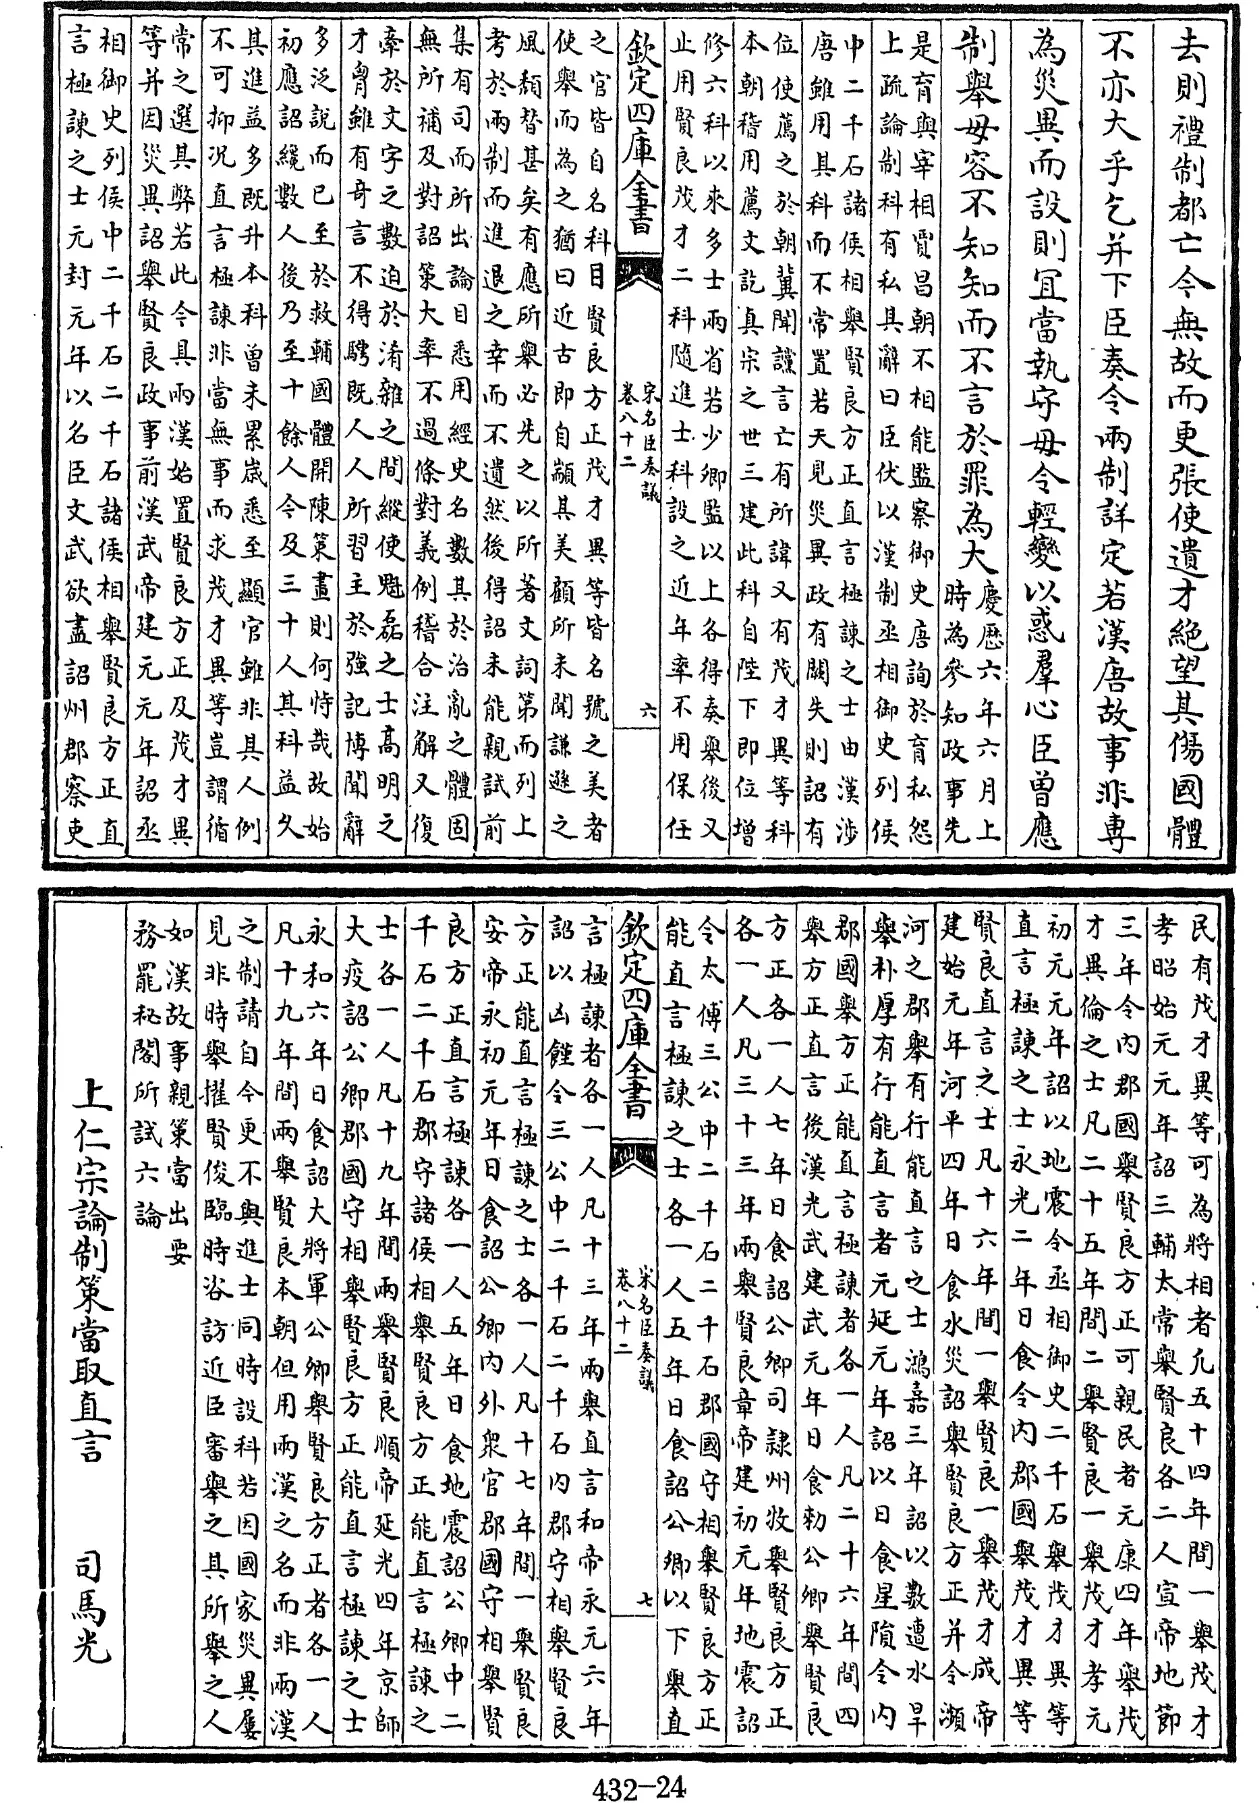 去則禮制都亡今無故而更張使遺才絶望其傷國體
不亦大乎乞并下臣奏令兩制詳定若漢唐故事非專
為災異而設則宜當執守毋令輕變以惑羣心臣曾應
制舉毋容不知知而不言於罪為大慶歴六年六月上
時為參知政事先
是育與宰相賈昌朝不相能監察御史唐詢於育私怨
上疏論制科有私其辭曰臣伏以漢制丞相御史列侯
中二千石諸侯相舉賢良方正直言極諫之士由漢涉
唐雖用其科而不常置若天見災異政有闕失則詔有
位使薦之於朝冀聞讜言亡有所諱又有茂才異等科
本朝稽用薦文訖真宗之世三建此科自陛下即位增
修六科以來多士兩省若少卿監以上各得奏舉後又
止用賢良茂才二科隨進士科設之近年率不用保任
欽定四庫全書
宋名臣奏議
卷八十二
六
之官皆自名科目賢良方正茂才異等皆名號之美者
使舉而為之猶曰近古即自顓其美顧所未聞謙遜之
風頽替甚矣有應所舉必先之以所著文詞第而列上
考於兩制而進退之幸而不遺然後得詔未能親試前
集有司而所出論目悉用經史名數其於治亂之體固
無所補及對詔策大率不過條對義例稽合注解又復
牽於文字之數迫於淆雜之間縱使魁磊之士高明之
才胷雖有竒言不得騁既人人所習主於強記博聞辭
多泛說而已至於救輔國體開陳策畫則何恃哉故始
初應詔纔數人後乃至十餘人今及三十人其科益久
其進益多既升本科曾未累嵗悉至顯官雖非其人例
不可抑况直言極諫非當無事而求茂才異等豈謂循
常之選其弊若此今具兩漢始置賢良方正及茂才異
等并因災異詔舉賢良政事前漢武帝建元元年詔丞
相御史列侯中二千石二千石諸侯相舉賢良方正直
言極諫之士元封元年以名臣文武欲盡詔州郡察吏
民有茂才異等可為將相者凡五十四年間一舉茂才
孝昭始元元年詔三輔太常舉賢良各二人宣帝地節
三年令内郡國舉賢良方正可親民者元康四年舉茂
才異倫之士凡二十五年間二舉賢良一舉茂才孝元
初元元年詔以地震令丞相御史二千石舉茂才異等
直言極諫之士永光二年日食令内郡國舉茂才異等
賢良直言之士凡十六年間一舉賢良一舉茂才成帝
建始元年河平四年日食水災詔舉賢良方正并令瀕
河之郡舉有行能直言之士鴻嘉三年詔以數遭水旱
舉朴厚有行能直言者元延元年詔以日食星隕令内
郡國舉方正能直言極諫者各一人凡二十六年間四
舉方正直言後漢光武建武元年日食勑公卿舉賢良
方正各一人七年日食詔公卿司隸州牧舉賢良方正
各一人凡三十三年兩舉賢良章帝建初元年地震詔
令太傅三公中二千石二千石郡國守相舉賢良方正
能直言極諫之士各一人五年日食詔公卿以下舉直
欽定四庫全書
宋名臣奏議
卷八十二
七
言極諫者各一人凡十三年兩舉直言和帝永元六年
詔以凶饉令三公中二千石二千石内郡守相舉賢良
方正能直言極諫之士各一人凡十七年間一舉賢良
安帝永初元年日食詔公卿内外衆官郡國守相舉賢
良方正直言極諫各一人五年日食地震詔公卿中二
千石二千石郡守諸侯相舉賢良方正能直言極諫之
士各一人凡十九年間兩舉賢良順帝延光四年京師
大疫詔公卿郡國守相舉賢良方正能直言極諫之士
永和六年日食詔大將軍公卿舉賢良方正者各一人
凡十九年間兩舉賢良本朝但用兩漢之名而非兩漢
之制請自今更不與進士同時設科若因國家災異屢
見非時舉擢賢俊臨時咨訪近臣審舉之其所舉之人
如漢故事親策當出要
務罷秘閣所試六論
上仁宗論制策當取直言 司馬光
432-24